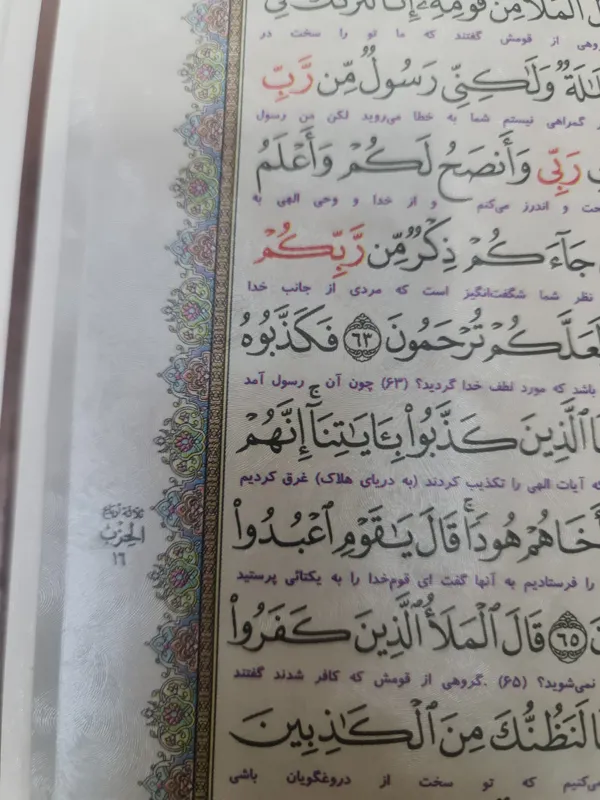 ٱلْمَلَأُ مِن قَوْمِهِۦٓ إِنَّا لَنَرَىٰكَ فِى
از قومش گفتند که ما تو را سخت در
وَلَٰكِنِّى رَسُولٌ مِّن رَّبِّ
گمراهی نیستم شما به خطا می‌روید لکن من رسول
رَبِّى وَأَنصَحُ لَكُمْ وَأَعْلَمُ
و اندرز می‌کنم و از خدا و وحی الهی به
جَآءَكُمْ ذِكْرٌ مِّن رَّبِّكُمْ
نظر شما شگفت‌انگیز است که مردی از جانب خدا
لَعَلَّكُمْ تُرْحَمُونَ ٦٣ فَكَذَّبُوهُ
باشد که مورد لطف خدا گردید؟ (۶۳) چون آن رسول آمد
ٱلَّذِينَ كَذَّبُوا۟ بِـَٔايَٰتِنَآ ۚ إِنَّهُمْ
آیات الهی را تکذیب کردند (به دریای هلاک) غرق کردیم
أَخَاهُمْ هُودًا ۚ قَالَ يَٰقَوْمِ ٱعْبُدُوا۟
را فرستادیم به آنها گفت ای قوم‌خدا را به یکتائی پرستید
٦٥ قَالَ ٱلْمَلَأُ ٱلَّذِينَ كَفَرُوا۟
نمی‌شوید؟ (۶۵) .گروهی از قومش که کافر شدند گفتند
لَنَظُنُّكَ مِنَ ٱلْكَٰذِبِينَ
می‌کنیم که تو سخت از دروغگویان باشی
الحِزْبُ
١٦